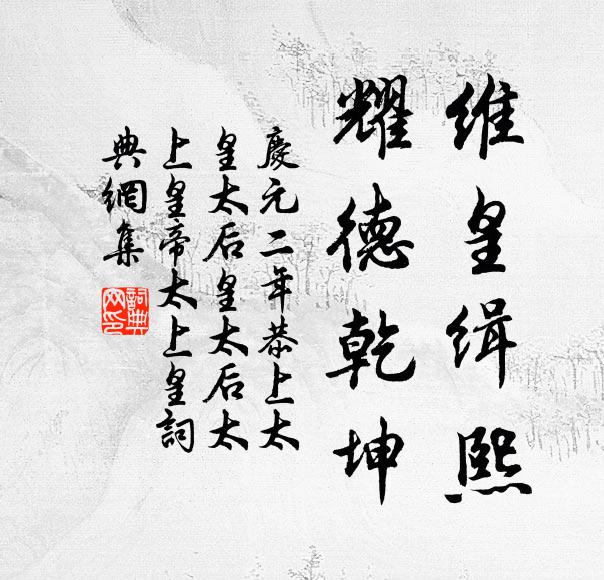 維皇緝熙
耀德乾坤
慶元二年恭上太
皇太后皇太后太
上皇帝太上皇詞
典網集
詞典
网印